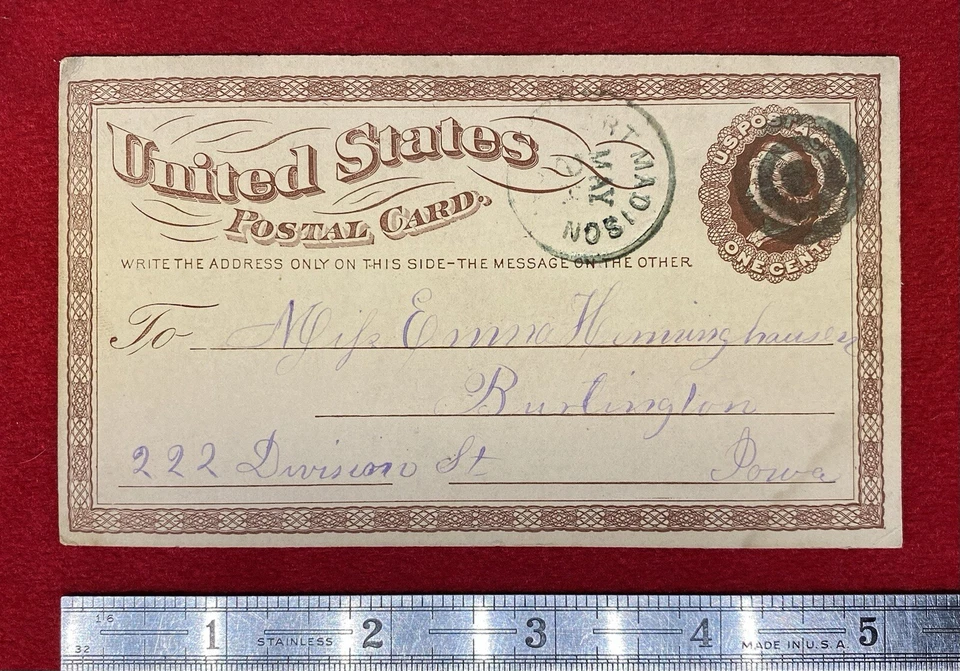 United States
Postal Card.
WRITE THE ADDRESS ONLY ON THIS SIDE-THE MESSAGE ON THE OTHER
MADISON
MAY
U.S. POSTAGE
ONE CENT
To Miss Emma Himminghausen
Burlington
222 Division St Iowa
16
32
1 2 3 4 5
STAINLESS MADE IN U.S.A.